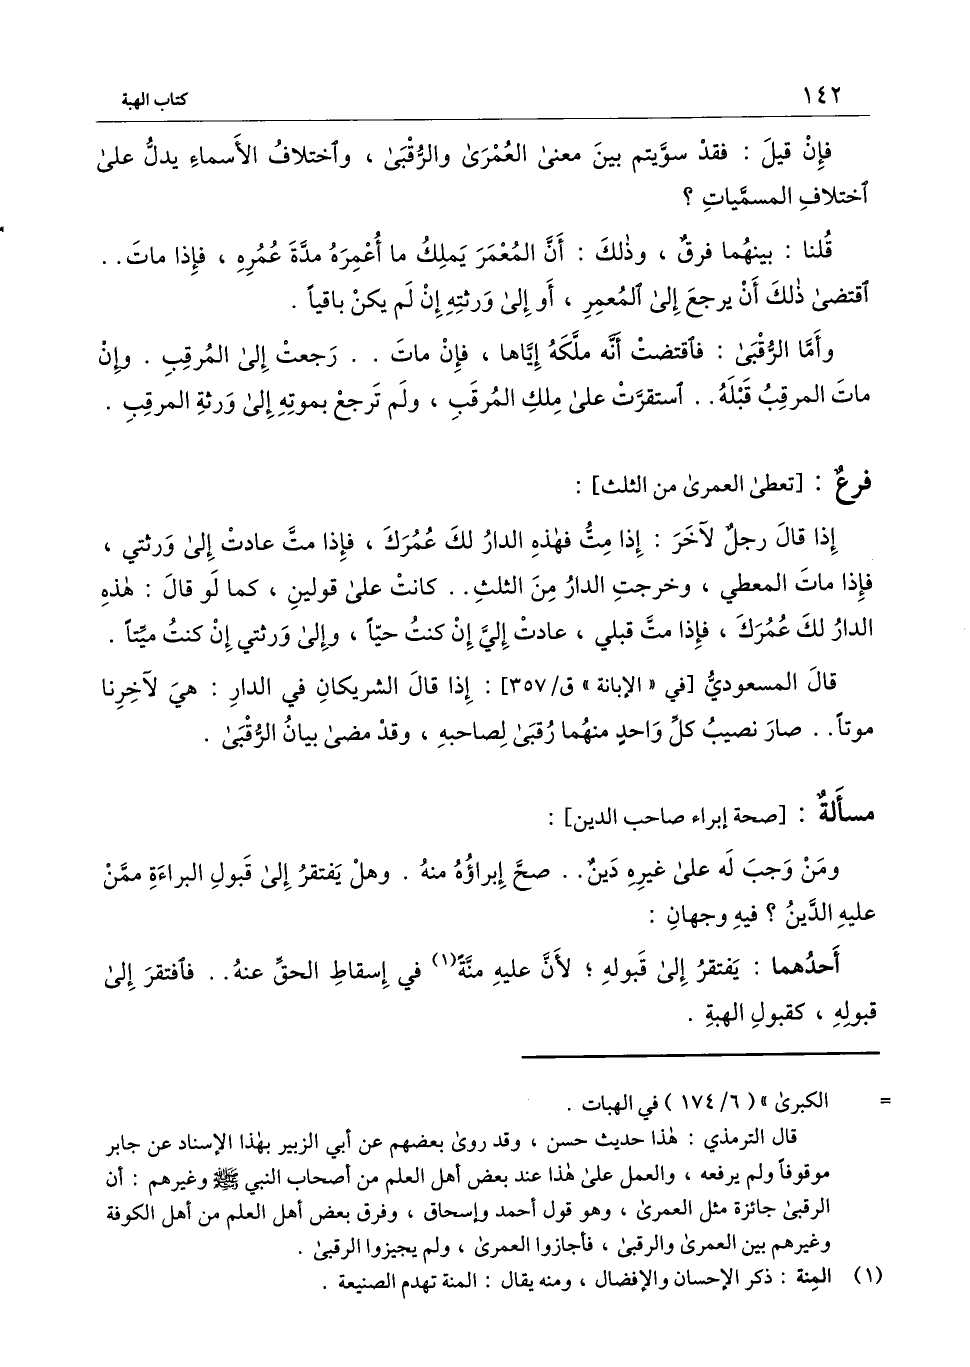 ١٤٢ كتاب الهبة
فإِنْ قيلَ : فقدْ سوَّيتم بينَ معنىٰ العُمْرَىٰ والرُّقْبَىٰ ، وٱختلافُ الأَسماءِ يدلُّ علىٰ
ٱختلافِ المسمَّياتِ ؟
قُلنا : بينهُما فرقٌ ، وذٰلكَ : أَنَّ المُعْمَرَ يَملِكُ ما أُعْمِرَهُ مدَّةَ عُمُرِهِ ، فإِذا ماتَ . .
ٱقتضىٰ ذٰلكَ أَنْ يرجعَ إِلىٰ ٱلمُعمِرِ ، أَو إِلىٰ وَرثتِهِ إِنْ لَم يكنْ باقياً .
وأَمَّا الرُّقْبَىٰ : فٱقتضتْ أَنَّه ملَّكَهُ إِيَّاها ، فإِنْ ماتَ . . رَجعتْ إِلىٰ المُرقِبِ . وإِنْ
ماتَ المرقِبُ قَبْلَهُ . . ٱستقرَّتْ علىٰ مِلكِ المُرقَبِ ، ولَم تَرجعْ بموتِهِ إِلىٰ وَرثةِ المرقِبِ .
فرعٌ : [تعطىٰ العمرىٰ من الثلث] :
إِذا قالَ رجلٌ لآخَرَ : إِذا مِتُّ فهٰذهِ الدارُ لكَ عُمُرَكَ ، فإِذا متَّ عادتْ إِلىٰ وَرثتي ،
فإِذا ماتَ المعطي ، وخرجتِ الدارُ مِنَ الثلثِ . . كانتْ علىٰ قولينِ ، كما لَو قالَ : هٰذهِ
الدارُ لكَ عُمُرَكَ ، فإِذا متَّ قبلي ، عادتْ إِليَّ إِنْ كنتُ حيّاً ، وإِلىٰ وَرثتي إِنْ كنتُ ميِّتاً .
قالَ المسعوديُّ [في « الإبانة » ق/ ٣٥٧] : إِذا قالَ الشريكانِ في الدارِ : هيَ لآخِرِنا
موتاً . . صارَ نصيبُ كلِّ وَاحدٍ منهُما رُقبَىٰ لِصاحبهِ ، وقدْ مضىٰ بيانُ الرُّقْبَىٰ .
مسأَلةٌ : [صحة إبراء صاحب الدين] :
ومَنْ وَجبَ لَه علىٰ غيرِهِ دَينٌ . . صحَّ إِبراؤُهُ منهُ . وهلْ يَفتقرُ إِلىٰ قَبولِ البراءَةِ ممَّنْ
عليهِ الدَّينُ ؟ فيهِ وجهانِ :
أَحدُهما : يَفتقرُ إِلىٰ قَبولهِ ؛ لأَنَّ عليهِ منَّةً(١) في إِسقاطِ الحقِّ عنهُ . . فٱفتقرَ إِلىٰ
قبولِهِ ، كقبولِ الهبةِ .
= الكبرىٰ » ( ٦/ ١٧٤ ) في الهبات .
قال الترمذي : هٰذا حديث حسن ، وقد روىٰ بعضهم عن أبي الزبير بهٰذا الإسناد عن جابر
موقوفاً ولم يرفعه ، والعمل علىٰ هٰذا عند بعض أهل العلم من أصحاب النبي ﷺ وغيرهم : أن
الرقبىٰ جائزة مثل العمرىٰ ، وهو قول أحمد وإسحاق ، وفرق بعض أهل العلم من أهل الكوفة
وغيرهم بين العمرىٰ والرقبىٰ ، فأجازوا العمرىٰ ، ولم يجيزوا الرقبىٰ .
(١) المِنة : ذكر الإحسان والإفضال ، ومنه يقال : المنة تهدم الصنيعة .